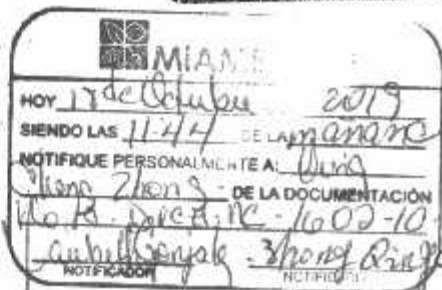 MIAM
HOY 17 de Octubre 2019
SIENDO LAS 11:44 DE LA mañana
NOTIFIQUE PERSONALMENTE A: Qing
Sheng Zhong - DE LA DOCUMENTACIÓN
16 02-10
Zhong Qing
NOTIFICADOR NOTIFICADO